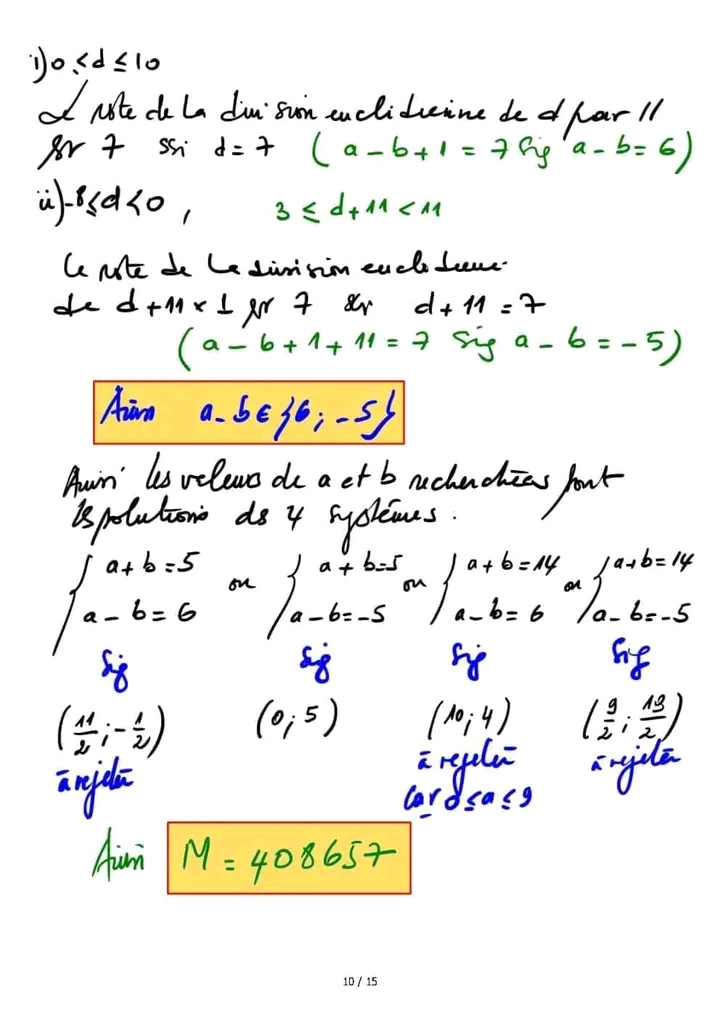 i) 0 ≤ d ≤ 10
Le reste de la division euclidienne de d par 11
est 7 ssi d = 7 ( a - b + 1 = 7 Sig a - b = 6 )
ii) -8 ≤ d < 0 , 3 ≤ d + 11 < 11
Le reste de la division euclidienne
de d + 11 × 1 est 7 d + 11 = 7
( a - b + 1 + 11 = 7 Sig a - b = -5 )
Ainsi a - b ∈ {6 ; -5}
Ainsi les valeurs de a et b recherchées sont
les solutions ds 4 systèmes :
{ a + b = 5 ou { a + b = 5 ou { a + b = 14 ou { a + b = 14
a - b = 6 a - b = -5 a - b = 6 a - b = -5
Sig Sig Sig Sig
(11/2 ; -1/2) (0 ; 5) (10 ; 4) (9/2 ; 19/2)
à rejeter à rejeter à rejeter
car 0 ≤ a ≤ 9
Ainsi M = 408657
10 / 15